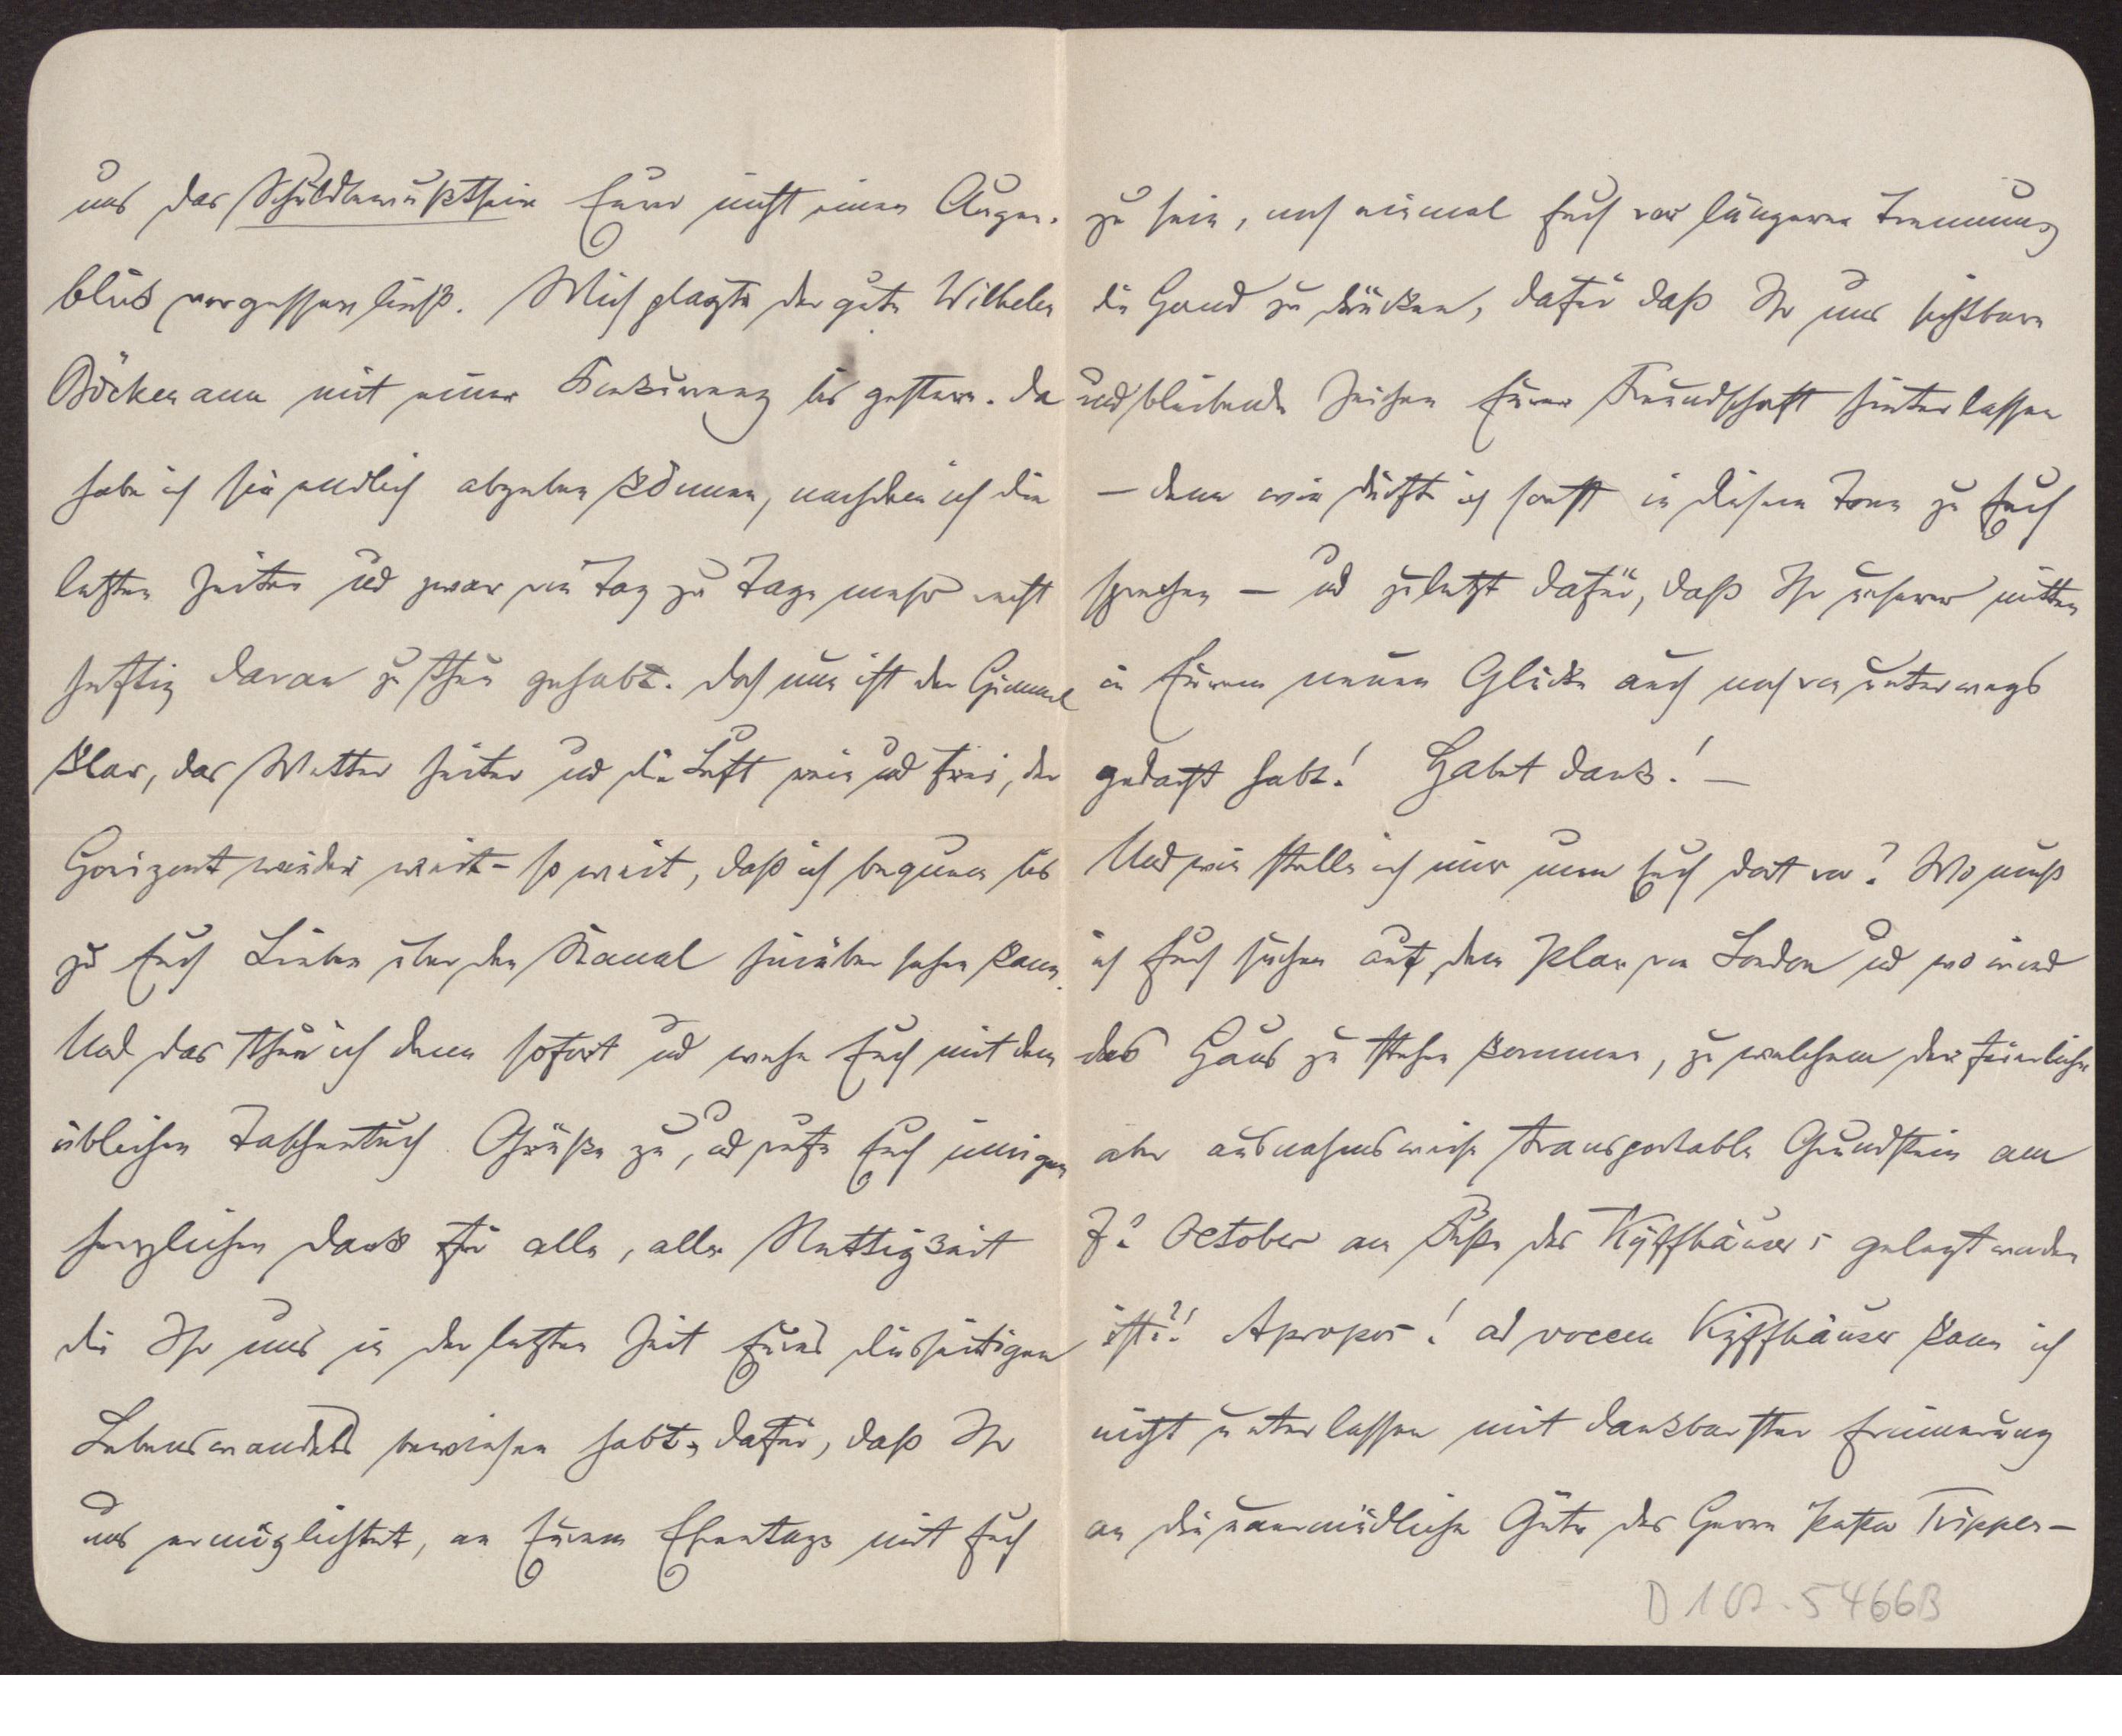 uns das Schuldbewußtsein Eurer nicht einen Augen-
blick vergessen ließ. Mich plagte der gute Wilhelm
Böckmann mit einer Konkurrenz bis gestern. Da
habe ich sie endlich abgeben können, nachdem ich die
letzten Zeiten und zwar von Tag zu Tage mehr recht
heftig daran zu thun gehabt. Doch nun ist der Himmel
klar, das Wetter heiter und die Luft rein und frei, der
Horizont wieder weit – so weit, daß ich bequem bis
zu Euch Lieben über den Kanal hinüber sehen kann.
Und das thue ich denn sofort und wehe Euch mit dem
üblichen Taschentuch Grüße zu, und rufe Euch innigen
herzlichen Dank für alle, alle Nettigkeit
die Ihr uns in der letzten Zeit Eures diesseitigen
Lebenswandels bewiesen habt, dafür, daß Ihr
uns ermöglichtet, an Eurem Ehrentage mit Euch
zu sein, noch einmal Euch vor längerer Trennung
die Hand zu drücken, dafür daß Ihr uns sichtbare
und bleibende Zeichen Eurer Freundschaft hinterlassen
– denn wie dürfte ich sonst in diesem Tone zu Euch
sprechen – und zuletzt dafür, daß Ihr unserer mitten
in Eurem neuen Glücke auch noch von unterwegs
gedacht habt! Habt Dank! –
Und wie stelle ich mir nun Euch dort vor? Wo muß
ich Euch suchen auf dem Plan von London und wo wird
das Haus zu stehen kommen, zu welchem der feierliche
aber ausnahmsweise transportable Grundstein am
7. October am Fuße des Kyffhäusers gelegt worden
ist?! Apropos! ad vocem Kyffhäuser kann ich
nicht unterlassen mit dankbarster Erinnerung
an die unermüdliche Güte des Herrn Papa Tripper-
D 102.5466B